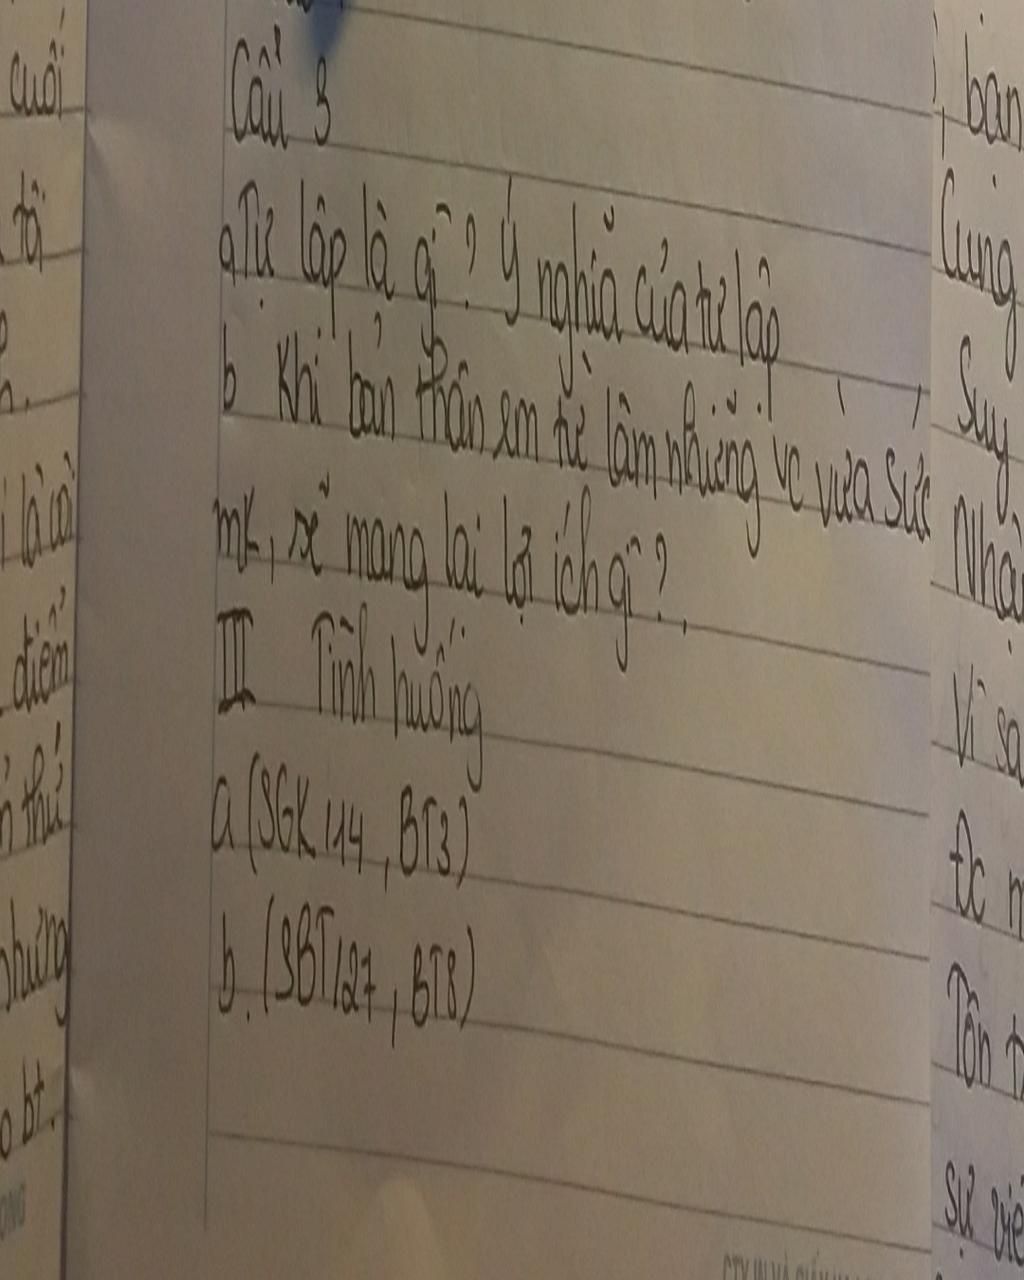 cuối
tôi
là cò
điểm
thứ
những
bt.
Câu 3
a Tự lập là gì? Ý nghĩa của tự lập
b Khi bản thân em tự làm những vc vừa sức
mk, sẽ mang lại lợi ích gì?.
III Tình huống
a (SGK/14, BT3)
b. (SBT/27, BT8)
, bản
Cung
Suy
Nhậ
Vì sa
Đc n
Tôn t
sự việ